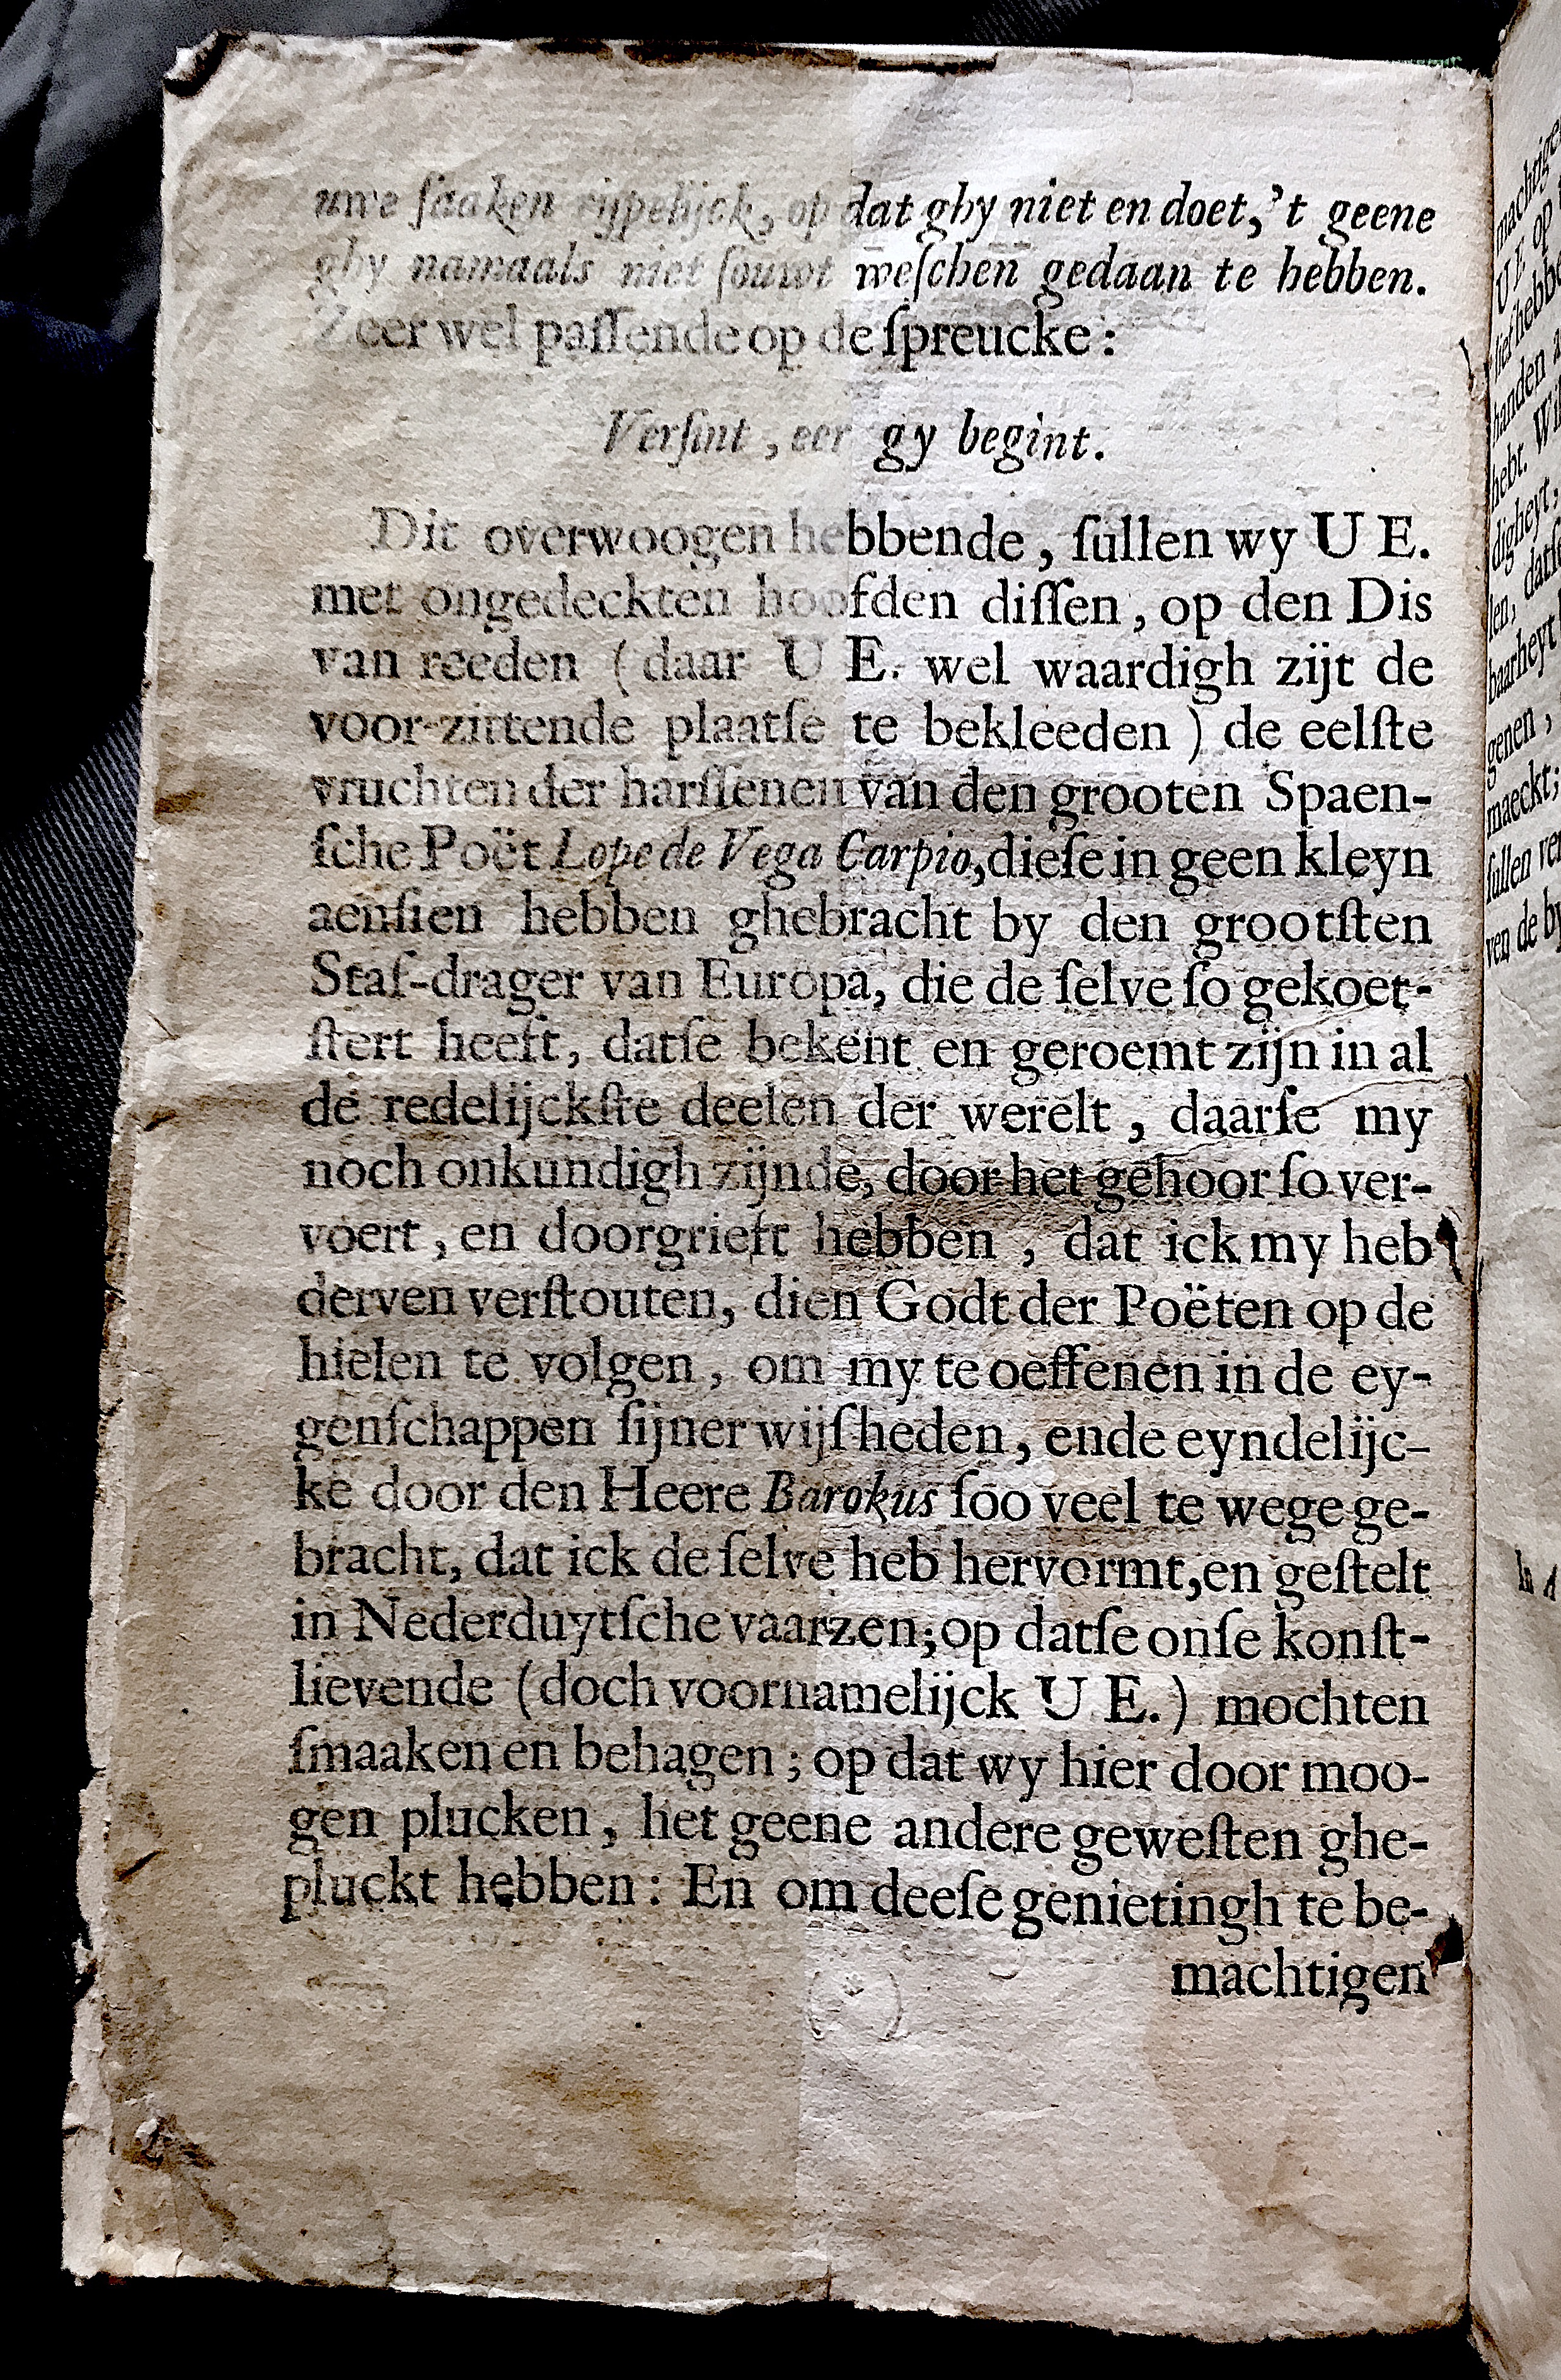 uwe ſaaken rijpelijck, op dat ghy niet en doet, 't geene
ghy namaals niet ſouwt weſchen gedaan te hebben.
Zeer wel paſſende op de ſpreucke:
Verſint, eer gy begint.
Dit overwoogen hebbende, ſullen wy U E.
met ongedeckten hoofden diſſen, op den Dis
van reeden (daar U E. wel waardigh zijt de
voor-zittende plaatſe te bekleeden) de eelſte
vruchten der harſſenen van den grooten Spaen-
ſche Poët Lope de Vega Carpio, dieſe in geen kleyn
aenſien hebben ghebracht by den grootſten
Staf-drager van Europa, die de ſelve ſo gekoet-
ſtert heeft, datſe bekent en geroemt zijn in al
de redelijckſte deelen der werelt, daarſe my
noch onkundigh zijnde, door het gehoor ſo ver-
voert, en doorgrieft hebben, dat ick my heb
derven verſtouten, dien Godt der Poëten op de
hielen te volgen, om my te oeffenen in de ey-
genſchappen ſijner wijſheden, ende eyndelijc-
ke door den Heere Barokus ſoo veel te wege ge-
bracht, dat ick de ſelve heb hervormt, en geſtelt
in Nederduytſche vaarzen; op datſe onſe konſt-
lievende (doch voornamelijck U E.) mochten
ſmaaken en behagen; op dat wy hier door moo-
gen plucken, het geene andere geweſten ghe-
pluckt hebben: En om deeſe genietingh te be-
machtigen
U E op
handen
hebt.
digheyt,
len, datſe
baarheyt
genen,
maeckt;
ſullen
ven de by